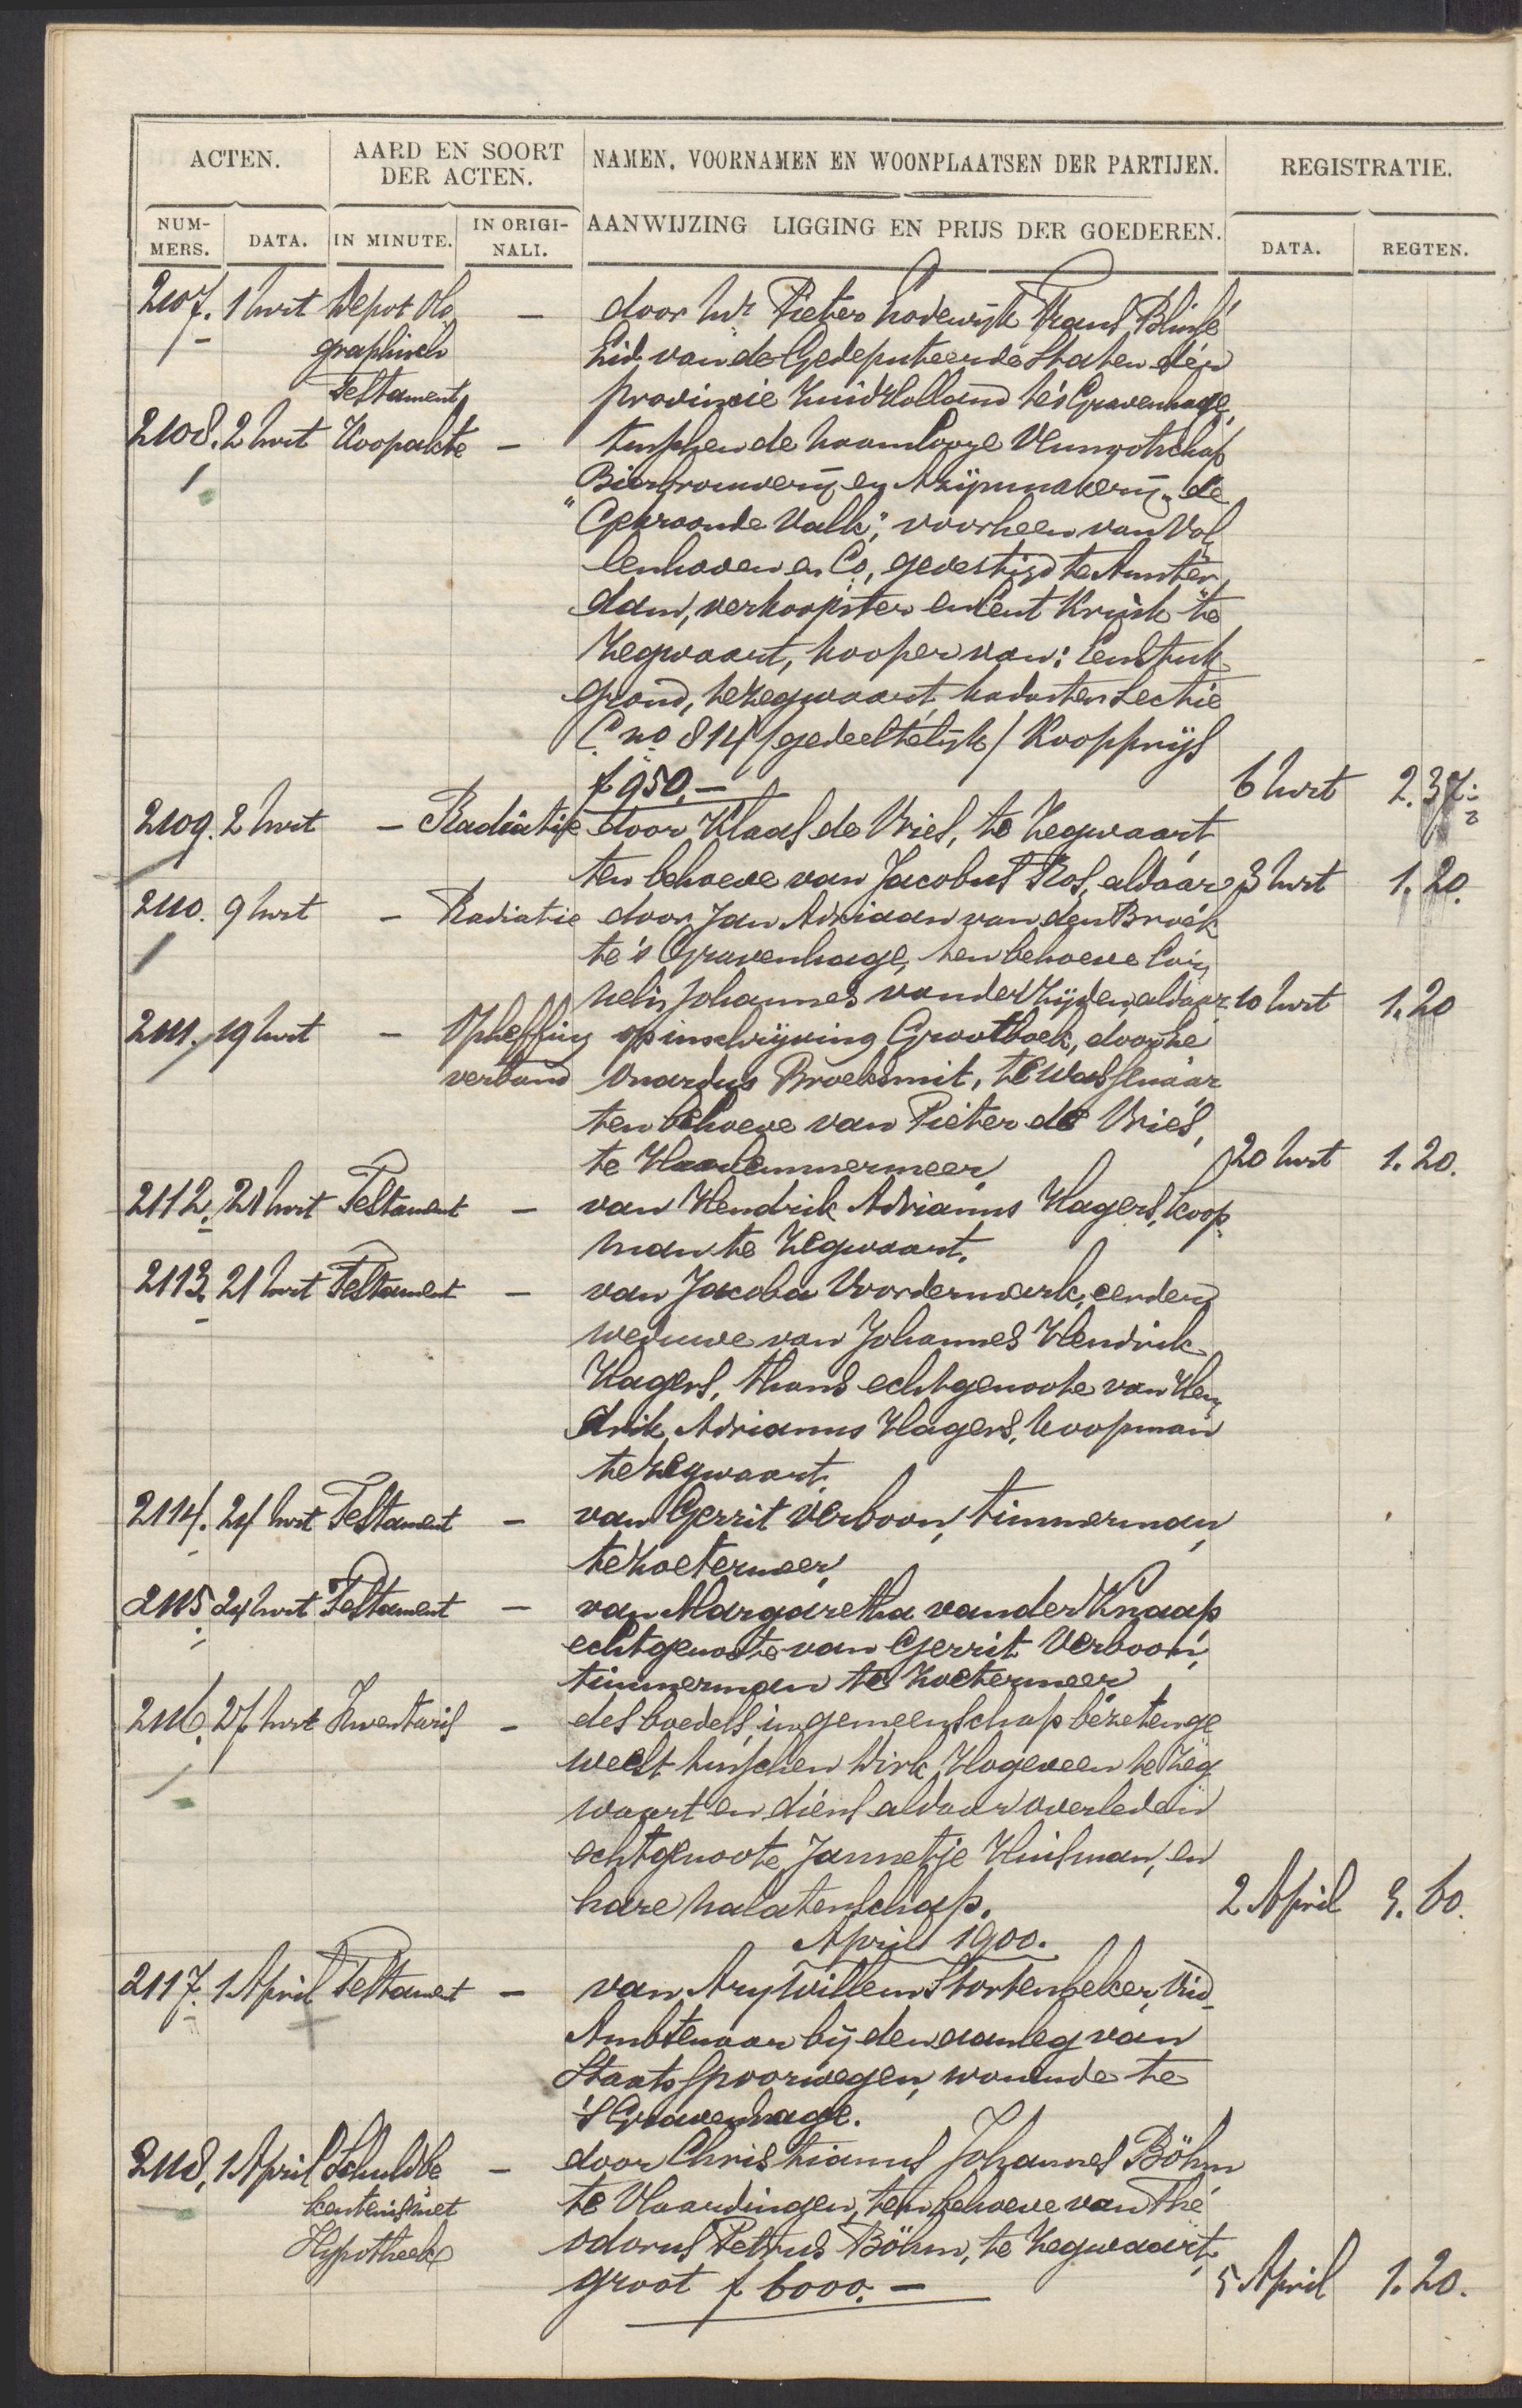 ACTEN. AARD EN SOORT DER ACTEN. NAMEN, VOORNAMEN EN WOONPLAATSEN DER PARTIJEN. REGISTRATIE.
NUM-MERS. DATA. IN MINUTE. IN ORIGI-NALI. AANWIJZING LIGGING EN PRIJS DER GOEDEREN. DATA. REGTEN.
2107. 1 Mrt Depot Olo — door Mr Pieter Lodewijk Frans
graphisch Lid van de Gedeputeerde Staten der
Testament provincie Zuid Holland te 's Gravenhage,
2108. 2 Mrt Koopakte — tusschen de Naamlooze Vennootschap
Bierbrouwerij en Azijnmakerij „de
"Gekroonde Valk", voorheen van Vol
lenhoven en Co, gevestigd te Amster
dam, verkoopster en Cent Kruik te
Zegwaart, kooper van: Een Stuk
grond, te Zegwaart, kadaster Sectie
C no 814 /gedeeltelijk/ Koopprijs
f 950.— 6 Mrt 2.37
2109. 2 Mrt — Radiatie door Klaas de Vries, te Zegwaart
ten behoeve van Jacobus Ros, aldaar 3 Mrt 1.20.
2110. 9 Mrt — Radiatie door Jan Adriaan van den Broek
te 's Gravenhage, ten behoeve Cor
nelis Johannes van der Zijden, aldaar 10 Mrt 1.20
2111. 19 Mrt — Opheffing op inschrijving Grootboek, door
verband Broeksmit, te Wassenaar
ten behoeve van Pieter de Vries,
te Haarlemmermeer. 20 Mrt 1.20.
2112. 21 Mrt Testament — van Hendrik Adrianus Hagers, koop
man te Zegwaart.
2113. 21 Mrt Testament — van Jacoba Voordermark, eerder
weduwe van Johannes Hendrik
Hagers, thans echtgenoote van Hen
drik Adrianus Hagers, koopman
te Zegwaart.
2114. 24 Mrt Testament — van Gerrit Verboon, timmerman,
te Zoetermeer,
2115. 24 Mrt Testament — van Margaretha van der Knaap,
echtgenoote van Gerrit Verboon,
timmerman te Zoetermeer
2116. 27 Mrt Inventaris — des boedels, in gemeenschap bezeten ge
weest tusschen Dirk Hogeveen te Zeg
waart en diens aldaar overleden
echtgenoote Jannetje Huisman, en
hare nalatenschap. 2 April 3.60.
April 1900.
2117. 1 April Testament — van Ary Willem Stortenbeker,
Ambtenaar bij den aanleg van
Staats Spoorwegen, wonende te
's Gravenhage.
2118. 1 April Schuldbe — door Christianus Johannes Böhm
kentenis met te Vlaardingen, ten behoeve van The
Hypotheek odorus Petrus Böhm, te Zegwaart,
groot f 6000.— 5 April 1.20.